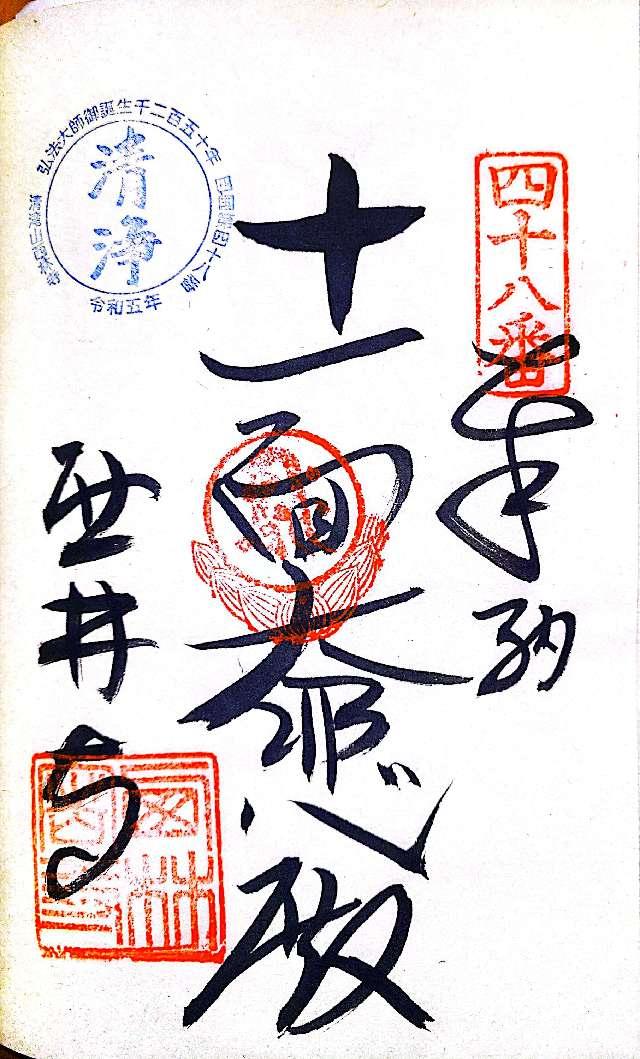 四十八番
奉納
十一面大悲殿
弘法大師御誕生千二百五十年
四国第四十八番
清滝山西林寺
清浄
令和五年
西林寺